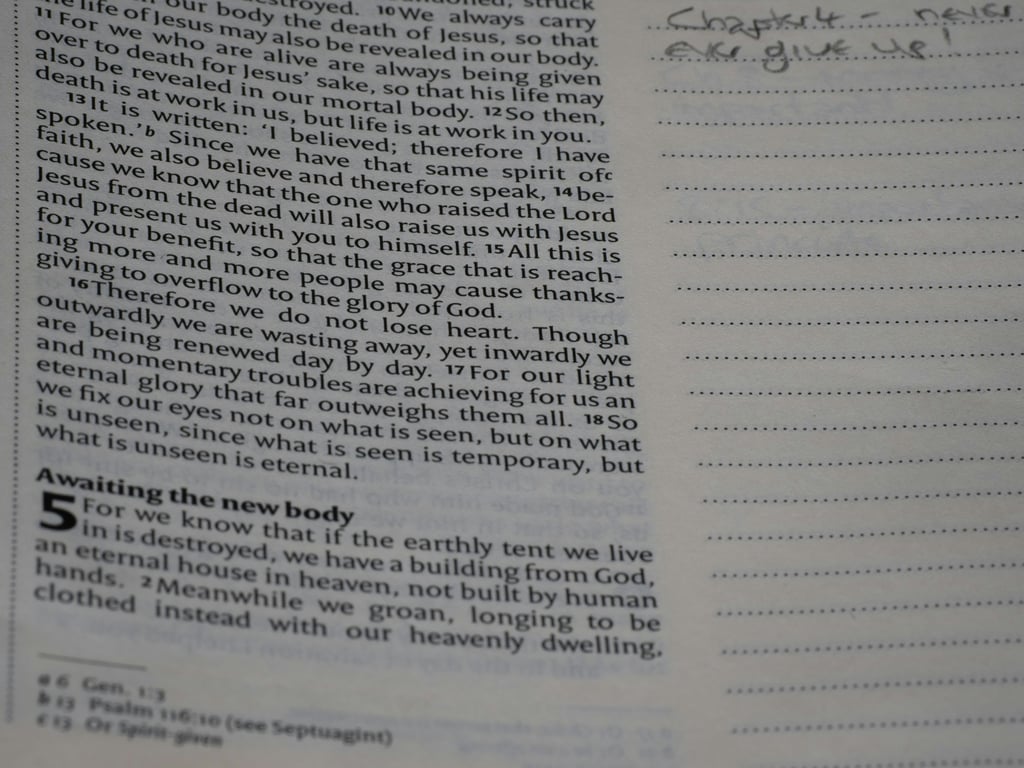 stroyed. 10 We always carry
our body the death of Jesus, so that
the life of Jesus may also be revealed in our body.
11 For we who are alive are always being given
over to death for Jesus' sake, so that his life may
also be revealed in our mortal body. 12 So then,
death is at work in us, but life is at work in you.
13 It is written: 'I believed; therefore I have
spoken.'b Since we have that same spirit of c
faith, we also believe and therefore speak, 14 be-
cause we know that the one who raised the Lord
Jesus from the dead will also raise us with Jesus
and present us with you to himself. 15 All this is
for your benefit, so that the grace that is reach-
ing more and more people may cause thanks-
giving to overflow to the glory of God.
16 Therefore we do not lose heart. Though
outwardly we are wasting away, yet inwardly we
are being renewed day by day. 17 For our light
and momentary troubles are achieving for us an
eternal glory that far outweighs them all. 18 So
we fix our eyes not on what is seen, but on what
is unseen, since what is seen is temporary, but
what is unseen is eternal.
Awaiting the new body
5 For we know that if the earthly tent we live
in is destroyed, we have a building from God,
an eternal house in heaven, not built by human
hands. 2 Meanwhile we groan, longing to be
clothed instead with our heavenly dwelling,
a 6 Gen. 1:3
b 13 Psalm 116:10 (see Septuagint)
c 13 Or Spirit-given
Chapter 4 - never
ever give up!